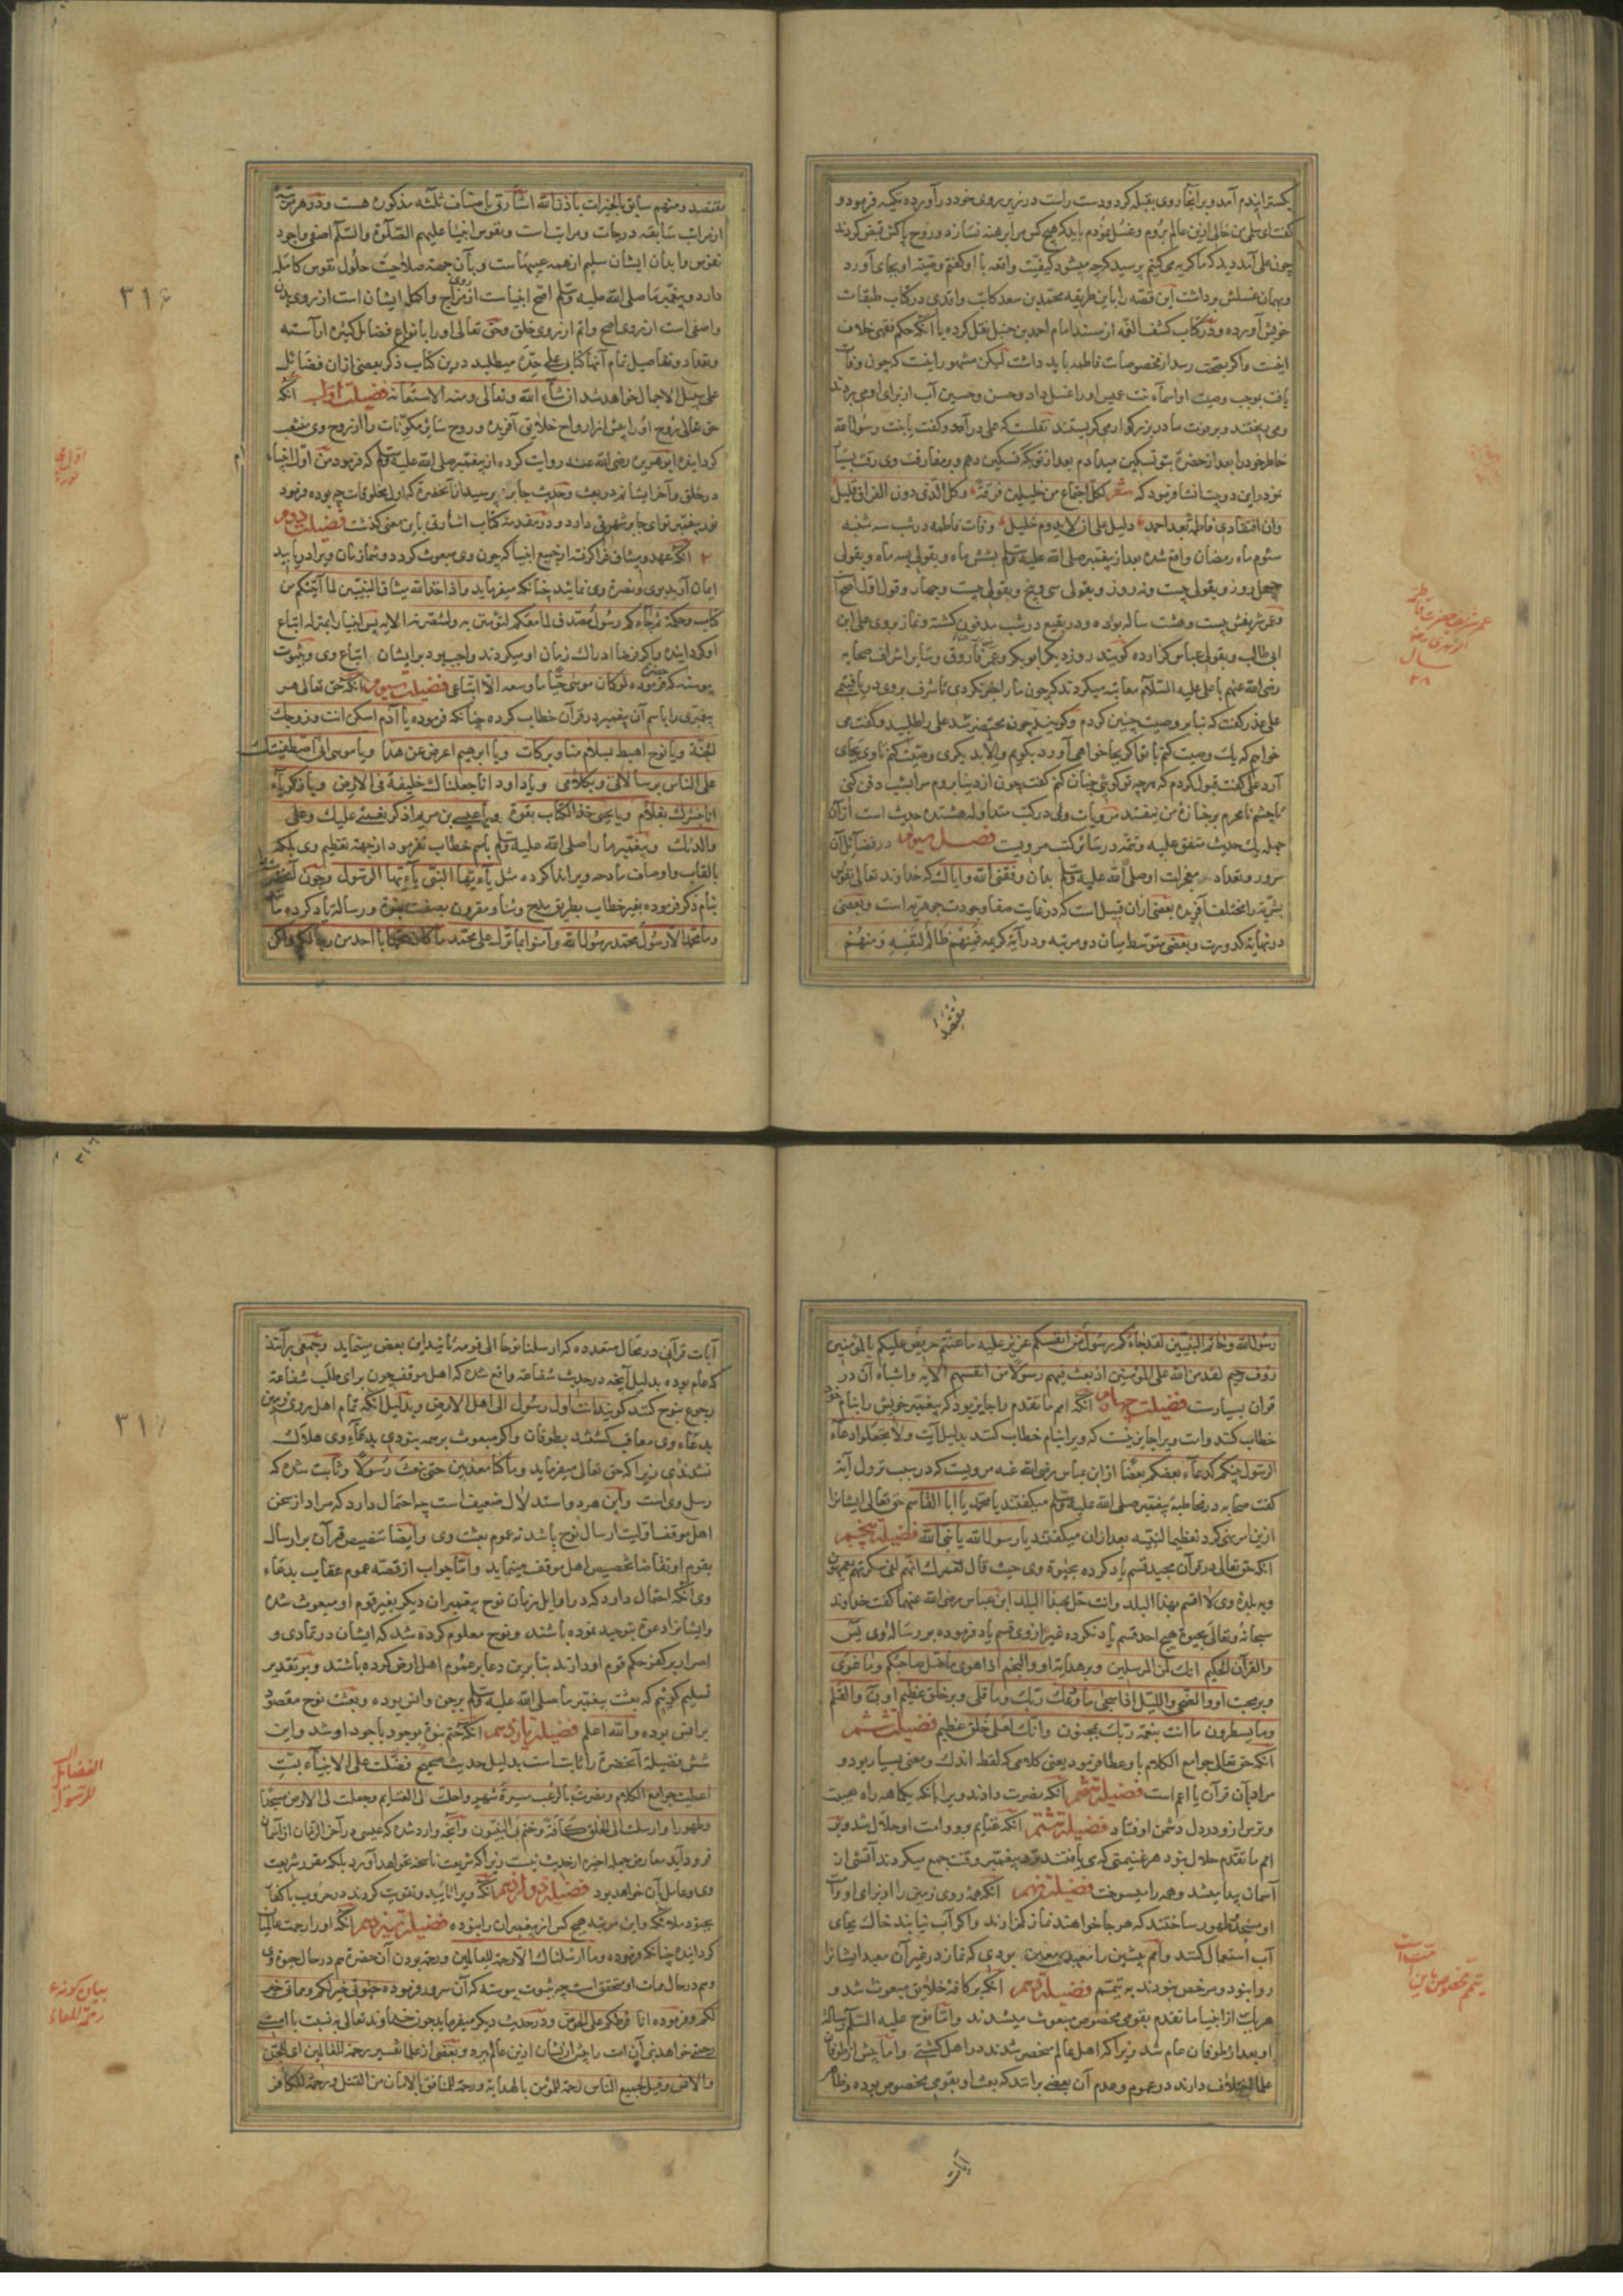 بگسترانیدم آمد و بر آنجا روی بقبله کرد و دست راست در زیر روی خود در آورده تکیه فرمود و
گفت ای سلمی من حالی ازین عالم بروم و غسل نمودم باید که هیچ کس مرا برهنه نسازد و روح پاکش قبض کردند
چون علی آمد دید که ما گریه می کنیم پرسید که چه میشود کیفیت واقعه با او گفتم وصیت او بجای آورد
و بهمان غسلش برداشت این قصه را باین طریقه محمد بن سعد کاتب واقدی در کتاب طبقات
خویش آورده و در کتاب کشف الغمه از مسند امام احمد بن حنبل نقل کرده با آنکه حکم فقهی خلاف
اینست و اگر بصحت رسد از مخصوصات فاطمه باید داشت لیکن مشهور اینست که چون وفات
یافت بموجب وصیت او اسماء بنت عمیس او را غسل داد و حسن و حسین آب از برای او می بردند
و می ریختند و بر فوت مادر بزرگوار می گریستند نقلست که علی در آمد و گفت یا بنت رسول الله
خاطر خود را بعد از حضرت بتو تسکین میدادم بعد از تو بکه تسکین دهم و بر مفارقت وی رقت بسیار
نمود و این دو بیت انشا فرمود که شعر لکل اجتماع من خلیلین فرقة وکل الذی دون الفراق قلیل
وان افتقادی فاطما بعد احمد دلیل علی ان لا یدوم خلیل وفات فاطمه در شب سه شنبه
سیوم ماه رمضان واقع شده بعد از پیغمبر صلی الله علیه وسلم بشش ماه و بقولی بسه ماه و بقولی
چهل روز و بقولی بیست و نه روز و بقولی سی و پنج و بقولی بیست و چهار و قول اول اصح
و عمر شریفش بیست و هشت ساله بوده و در بقیع در شب مدفون گشته و نماز بر وی علی ابن
ابی طالب و بقولی عباس گزارده گویند روز دیگر ابوبکر و عمر فاروق و سایر اشراف صحابه
رضی الله عنهم با علی علیه السلام معاتبه میکردند که چون ما را خبر نکردی تا شرف بر وی دریافتمی
علی عذر گفت که بنا بر وصیت چنین کردم و گویند چون محتضر شد علی را طلبید و گفت می
خواهم که یک وصیت کنم با تو اگر بجا خواهی آورد بگویم و الا بدیگری وصیت کنم تا وی بجای
آرد علی گفت قبول کردم که هر چه تو گوئی چنان کنم گفت چون از دنیا بروم مرا بشب دفن کنی
تا چشم نامحرم بر جنازه من نیفتد مرویات وی در کتب متداوله هشتده حدیث است از آن
جمله یک حدیث متفق علیه و تتمه در سائر کتب مرویست فصل سیوم در فضائل آن
سرور و تعداد معجزات او صلی الله علیه وسلم بدان وفقنی الله وایاک که خداوند تعالی نفوس
بشریه را مختلف آفریده بعضی از آن قبیل است که در غایت صفا وجودت جوهریه است و بعضی
در نهایة کدورت و بعضی متوسط میان دو مرتبه و در آیة کریمه فمنهم ظالم لنفسه ومنهم
مقتصد
عمر شریف حضرت فاطمه
سال
۲۸
مقتصد ومنهم سابق بالخیرات باذن الله اشارتی باصناف ثلثه مذکوره هست و در هر مرتبه
از مراتب سابقه درجات و مراتب است و نفوس انبیا علیهم الصلوة والسلام اصفی و اجود
نفوس و ابدان ایشان سلیم از همه عیبهاست و بآن جهت صلاحیت حلول نفوس کامله
دارد و پیغمبر ما صلی الله علیه وسلم اصح انبیاست از روی مزاج و اکمل ایشان است از روی بدن
و اصفی است از روی روح و اتم از روی خلق و حق تعالی او را بانواع فضایل کثیره آراسته
و تعداد و تفاصیل تمام آنها کتابی علی حده میطلبد درین کتاب ذکر بعضی از آن فضائل
علی سبیل الاجمال خواهد شد ان شاء الله وتعالی ومنه الاستعانة فضیلت اول آنکه
حق تعالی روح او را پیش از ارواح خلایق آفریده و روح سائر مکونات را از روح وی منشعب
گردانیده ابو هریره رضی الله عنه روایت کرده از پیغمبر صلی الله علیه وسلم که فرمود من اول انبیاء
در خلق و آخر ایشانم در بعث و حدیث جابر که پرسید از آنحضرة که اول مخلوقات چه بوده فرمود
نور پیغمبر تو ای جابر شهرتی دارد و در مقدمه کتاب اشارتی باین معنی گذشت فضیلت دوم
آنکه عهد و میثاق فرا گرفته از جمیع انبیا که چون وی مبعوث گردد و شما زمان ویرا دریابید
ایمان آرید بوی و نصرة وی نمائید چنانکه میفرماید واذ اخذ الله میثاق النبیین لما آتیتکم من
کتاب وحکمة ثم جاءکم رسول مصدق لما معکم لتؤمنن به ولتنصرنه الآیه پس انبیا را بمنزله اتباع
او گردانیده و اگر فرضا ادراک زمان او میکردند واجب بود بر ایشان اتباع وی و بثبوت
پیوسته که فرموده لو کان موسی حیا ما وسعه الا اتباعی فضیلت سیوم آنکه حق تعالی هر
پیغمبری را باسم آن پیغمبر در قرآن خطاب کرده چنانکه فرموده یا آدم اسکن انت وزوجک
الجنة ویا نوح اهبط بسلام منا وبرکات ویا ابرهیم اعرض عن هذا ویا موسی انی اصطفیتک
علی الناس برسالاتی وبکلامی ویا داود انا جعلناک خلیفة فی الارض ویا زکریاء
انا نبشرک بغلام ویا یحیی خذ الکتاب بقوة ویا عیسی بن مریم اذکر نعمتی علیک وعلی
والدتک و پیغمبر ما را صلی الله علیه وسلم باسم خطاب نفرمود از جهة تعظیم وی بلکه
بالقاب و اوصاف مادحه ویرا ندا کرده مثل یاءیها النبی یاءیها الرسول و چون آنحضرت
بنام ذکر فرموده بغیر خطاب بطریق مدح و ثنا و مقرون بصفت نبوة و رسالة یاد کرده
وما محمد الا رسول محمد رسول الله وآمنوا بما نزل علی محمد ما کان محمد ابا احد من رجالکم ولکن
۳۱۶
رسول الله وخاتم النبیین لقد جاءکم رسول من انفسکم عزیز علیه ما عنتم حریص علیکم بالمؤمنین
رؤف رحیم لقد من الله علی المؤمنین اذ بعث فیهم رسولا من انفسهم الآیه و اشباه آن در
قران بسیارست فضیلت چهارم آنکه امم ما تقدم را جایز بود که پیغمبر خویش را بنام خود
خطاب کنند و امت ویرا جایز نیست که ویرا بنام خطاب کنند بدلیل آیت ولا تجعلوا دعاء
الرسول بینکم کدعاء بعضکم بعضا از ابن عباس رضی الله عنه مرویست که در سبب نزول آیة
گفت صحابه در مخاطبه پیغمبر صلی الله علیه وسلم میگفتند یا محمد یا ابا القاسم حق تعالی ایشانرا
ازین امر نهی کرد تعظیما لنبیه بعد از آن میگفتند یا رسول الله یا نبی الله فضیلة پنجم
آنکه حق تعالی در قرآن مجید قسم یاد کرده بحیوة وی حیث قال لعمرک انهم لفی سکرتهم یعمهون
و به بلده وی لا اقسم بهذا البلد وانت حل بهذا البلد ابن عباس رضی الله عنهما گفت خداوند
سبحانه وتعالی بحیوة هیچ احد قسم یاد نکرده غیر از وی و قسم یاد فرموده بر رسالة وی یس
والقرآن الحکیم انک لمن المرسلین و بر هدایة او والنجم اذا هوی ما ضل صاحبکم وما غوی
و بر محبت او والضحی واللیل اذا سجی ما ودعک ربک وما قلی و بر خلق عظیم او ن والقلم
وما یسطرون ما انت بنعمة ربک بمجنون وانک لعلی خلق عظیم فضیلت ششم
آنکه حق تعالی جوامع الکلام باو عطا فرمود یعنی کلامی که لفظ اندک و معنی بسیار بود و
مراد بآن قرآن یا اعم است فضیلة هفتم آنکه نصرت دادند ویرا بآنکه یکماهه راه هیبت
و ترس از و در دل دشمن او فتاد فضیلة هشتم آنکه غنایم بر وی و امت او حلال شد و بر
امم ما تقدم حلال نبود هر غنیمتی که می یافتند نزد پیغمبر وقت جمع میکردند آتشی از
آسمان پیدا میشد و همه را میسوخت فضیلة نهم آنکه همه روی زمین را از برای او و امت
او مسجد و طهور ساختند که هر جا خواهند نماز گزارند و اگر آب نیابند خاک بجای
آب استعمال کنند و امم پیشین را معبدی معین بودی که نماز در غیر آن معبد ایشانرا
روا نبود و مرخص نبودند به تیمم فضیلة دهم آنکه بر کافه خلایق مبعوث شد و
هر یک از انبیا ما تقدم بقومی مخصوص مبعوث میشدند و اما نوح علیه السلام رسالة
او بعد از طوفان عام شد زیرا که اهل عالم منحصر شدند در اهل کشتی و اما پیش از طوفان
علما اختلاف دارند در عموم و عدم آن بعضی برانند که بعث او بقومی مخصوص بوده و ظاهر
آیات
تیمم مخصوص باین امت است
آیات قرآنی در محال متعدده که ارسلنا نوحا الی قومه تائید این بعض مینماید و جمعی برآنند
که عام بوده بدلیل آنچه در حدیث شفاعة واقع شده که اهل موقف چون برای طلب شفاعة
رجوع بنوح کنند گویند انت اول رسول الی اهل الارض و بدلیل آنکه تمام اهل روی زمین
بدعاء وی معاقب گشتند بطوفان و اگر مبعوث بر همه نبودی بدعاء وی هلاک
نشدندی زیرا که حق تعالی میفرماید وما کنا معذبین حتی نبعث رسولا و ثابت شده که
رسل وی است و این هر دو استدلال ضعیف است چه احتمال دارد که مراد از سخن
اهل موقف اولیت ارسال نوح باشد نه عموم بعثت وی و ایضا تنصیص قرآن بر ارسال
بقوم او تقاضا تخصیص اهل موقف مینماید و اما جواب از قصه عموم عقاب بدعاء
وی آنکه احتمال دارد که در اوایل زمان نوح پیغمبران دیگر بغیر قوم او مبعوث شده
و ایشانرا دعوة بتوحید نموده باشند و نوح معلوم کرده شد که ایشان در تمادی و
اصرار بر کفر حکم قوم او دارند بنابرین دعا بر عموم اهل ارض کرده باشند و بر تقدیر
تسلیم گوئیم که بعثت پیغمبر ما صلی الله علیه وسلم بر جن و انس بوده و بعثت نوح مقصور
بر انس بوده والله اعلم فضیلة یازدهم آنکه ختم نبوة بوجود باجود او شد و این
شش فضیلة آنحضرة را ثابت است بدلیل حدیث صحیح فضلت علی الانبیاء بست
اعطیت جوامع الکلام ونصرت بالرعب مسیرة شهر واحلت لی الغنایم وجعلت لی الارض مسجدا
وطهورا وارسلت الی الخلق کافة وختم بی النبیون و آنچه وارد شده که عیسی در آخر الزمان از آسمان
فرود آید معارض جمله اخیره از حدیث نیست زیرا که شریعت ناسخه نخواهد آورد بلکه مقرر شریعت
وی و عامل بآن خواهد بود فضیلة دوازدهم آنکه ویرا تائید و تقویت کردند در حروب با کفار
بجنود ملائکه و این مرتبه هیچ کس از پیغمبران را نبوده فضیلة سیزدهم آنکه او را رحمت عالمیان
گردانیده چنانکه فرموده وما ارسلناک الا رحمة للعالمین و رحمة بودن آن حضرة هم در حال حیوة وی
و هم در حال ممات او متحقق است چه بثبوت پیوسته که آن سرور فرموده حیوتی خیر لکم ومماتی خیر
لکم و فرموده انا فرطکم علی الحوض و در حدیث دیگر میفرماید چون خداوند تعالی به نسبت با امتی
رحمتی خواهد نبی آن امت را پیش از ایشان ازین عالم ببرد و بعضی از علما تفسیر رحمة للعالمین ای للجن
والانس وقیل لجمیع الناس رحمة للمؤمن بالهدایة ورحمة للمنافق بالامان من القتل ورحمة للکافر
۳۱۷
الفضائل
للرسول
بیان کردن
رحمة للعالمین